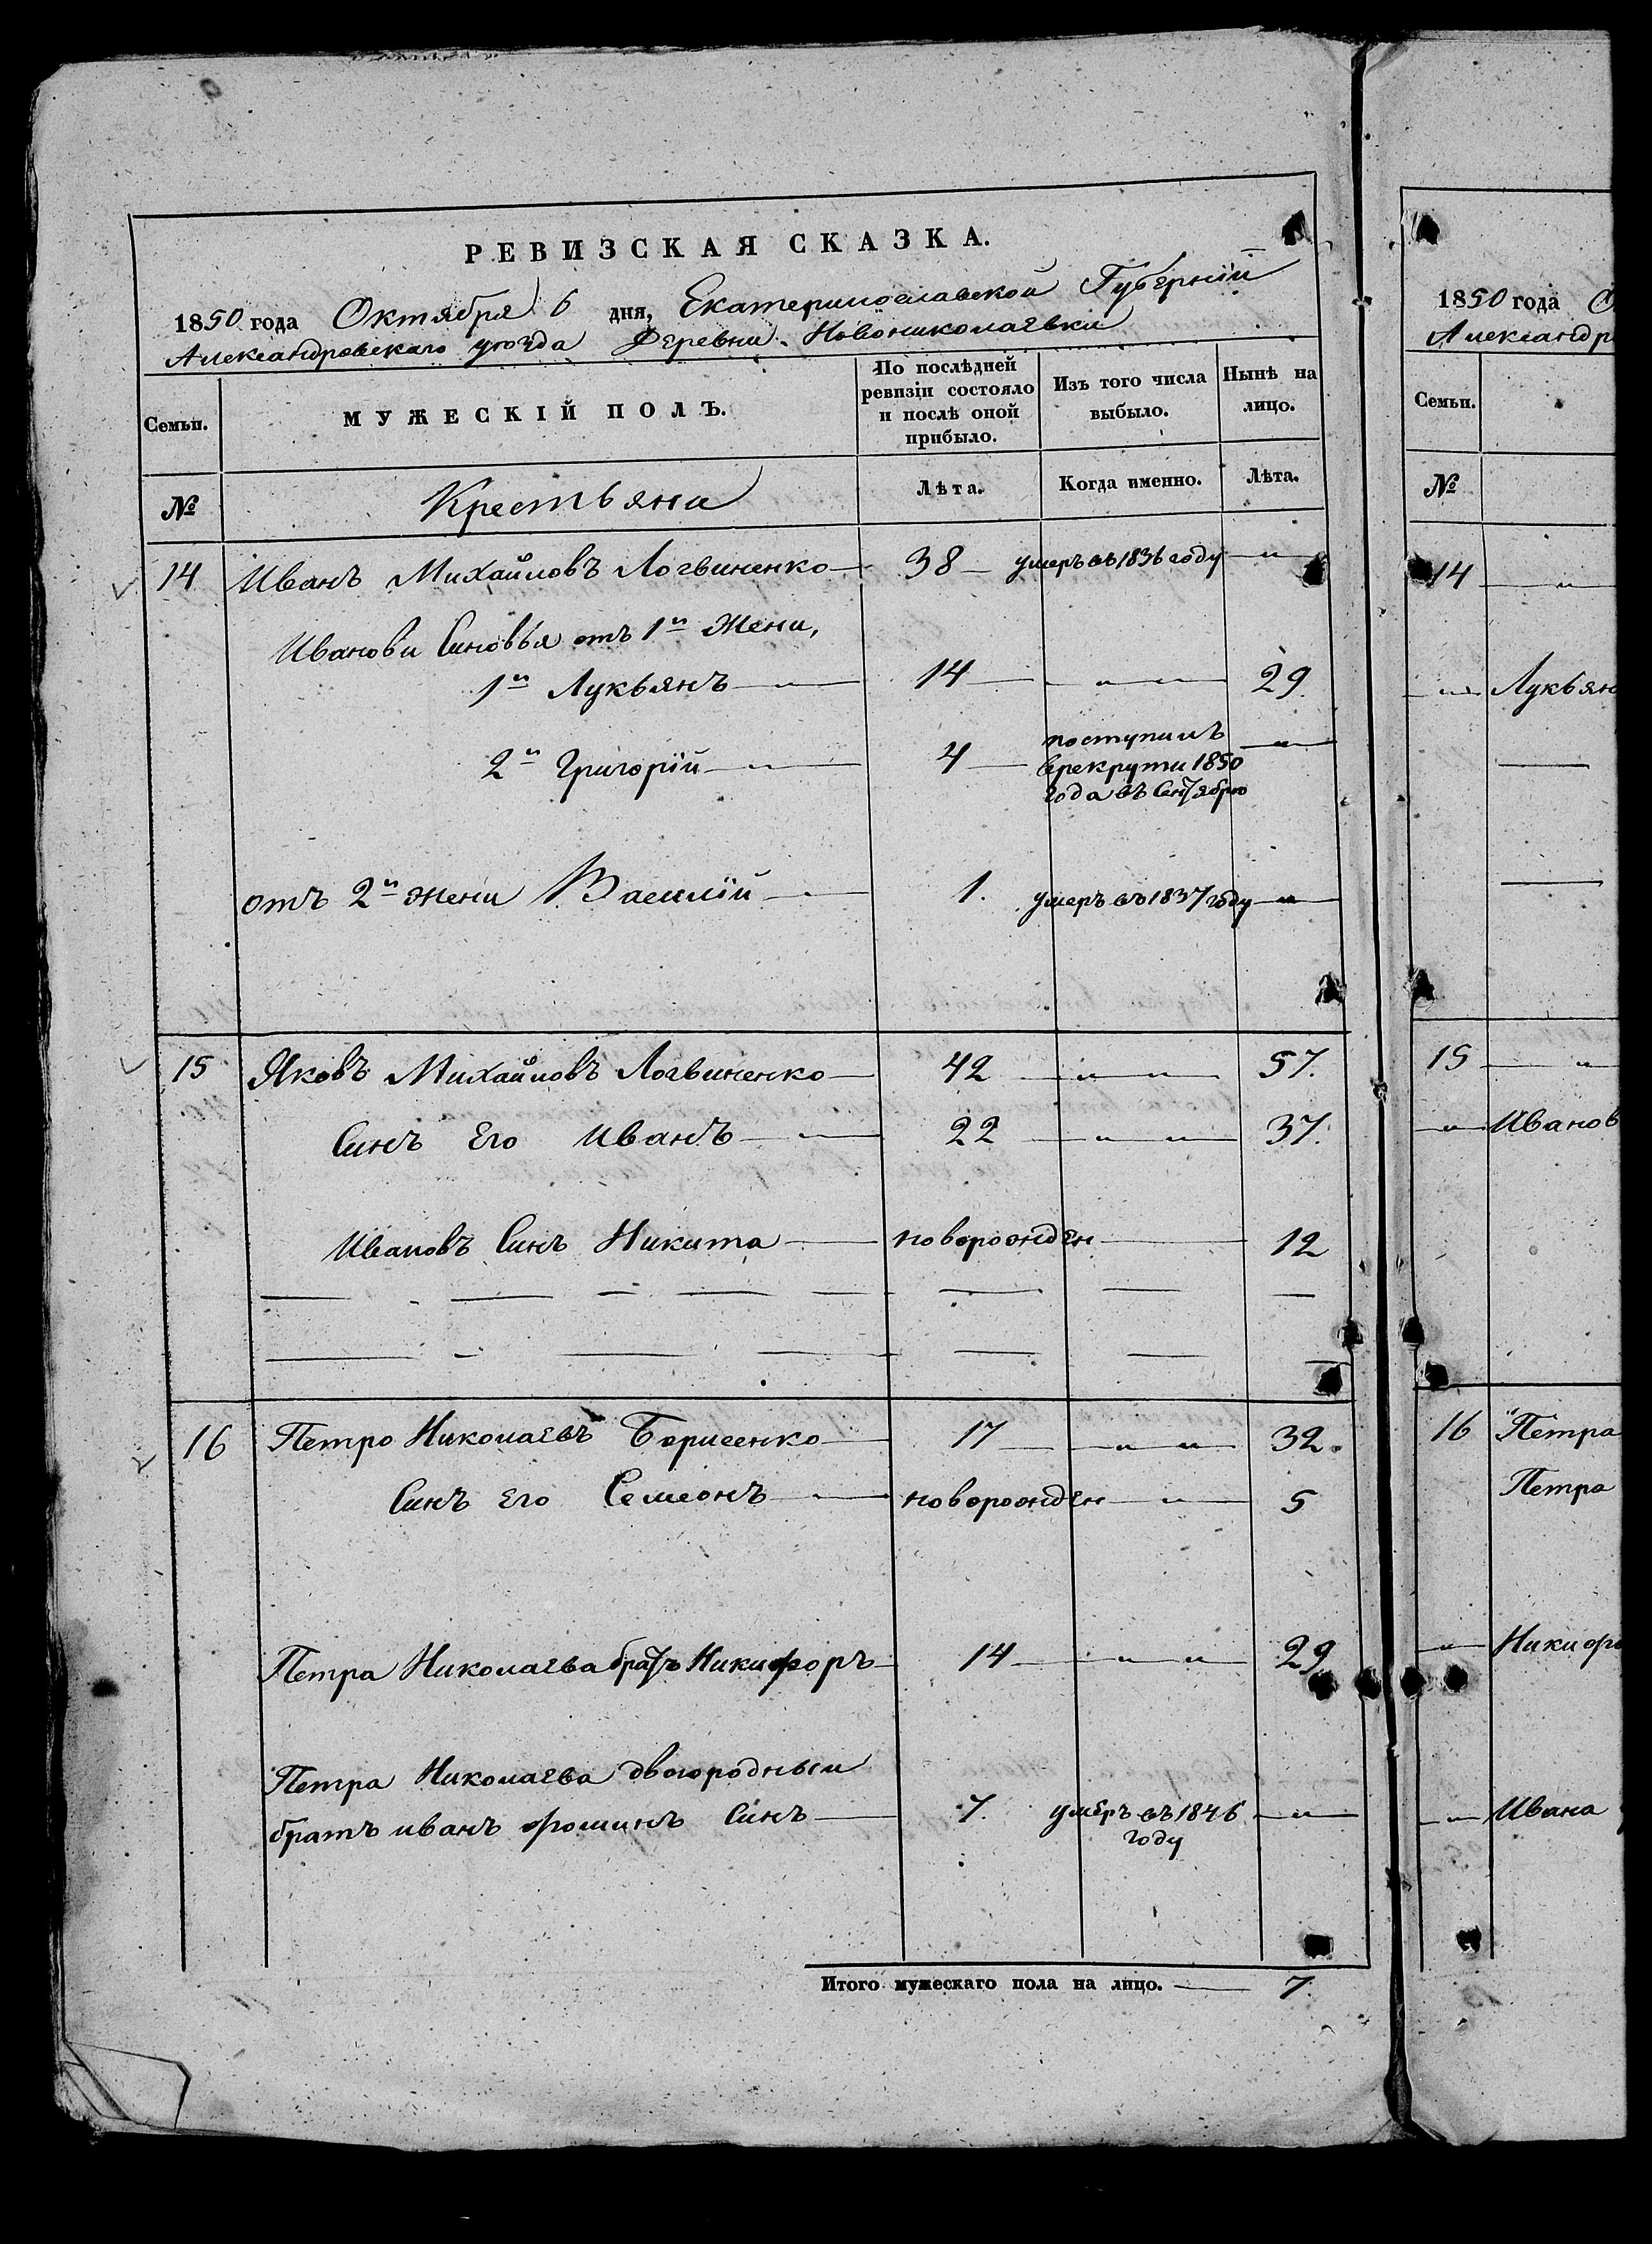 РЕВИЗСКАЯ СКАЗКА.
1850 года Октября 6 дня, Екатеринославской Губерній
Александровскаго уезда Деревни Новониколаевки
Семьи.
МУЖЕСКІЙ ПОЛЪ.
По послѣдней ревизіи состояло и послѣ оной прибыло.
Изъ того числа выбыло.
Нынѣ на лицо.
№
Крестьяна
Лѣта.
Когда именно.
Лѣта.
14 Иванъ Михайловъ Логвиненко — 38 — умеръ въ 1836 году — „ —
Иванови Синовья отъ 1й Жени,
1й Лукьянъ — „ — 14 — „ — „ — 29
2й Григорій — „ — 4 — поступилъ — „ —
врекрути 1850
года въ Сентябрю
отъ 2й жени Василій — „ — 1. умеръ въ 1837 году — „ —
15 Яковъ Михайловъ Логвиненко — 42 — „ — „ — 57.
Синъ Его Иванъ — „ — 22 — „ — „ — 37.
Ивановъ Синъ Никита — новорожден — 12
16 Петро Николаевъ Борисенко — 17 — „ — „ — 32.
Синъ Его Семеонъ — „ — новорожден — „ — 5
Петра Николаева братъ Никифоръ — 14 — „ — „ — 29
Петра Николаева двоюродный
братъ иванъ фоминъ Синъ — 7. умеръ въ 1846 — „ —
году
Итого мужескаго пола на лицо. — 7.
1850 года О
Александр
Семьи.
№
14 — „ —
— „ — Лукьян
15 — „
— „ — Иванов
16 Петра
Петра
— „ — Никифо
— „ — Ивана